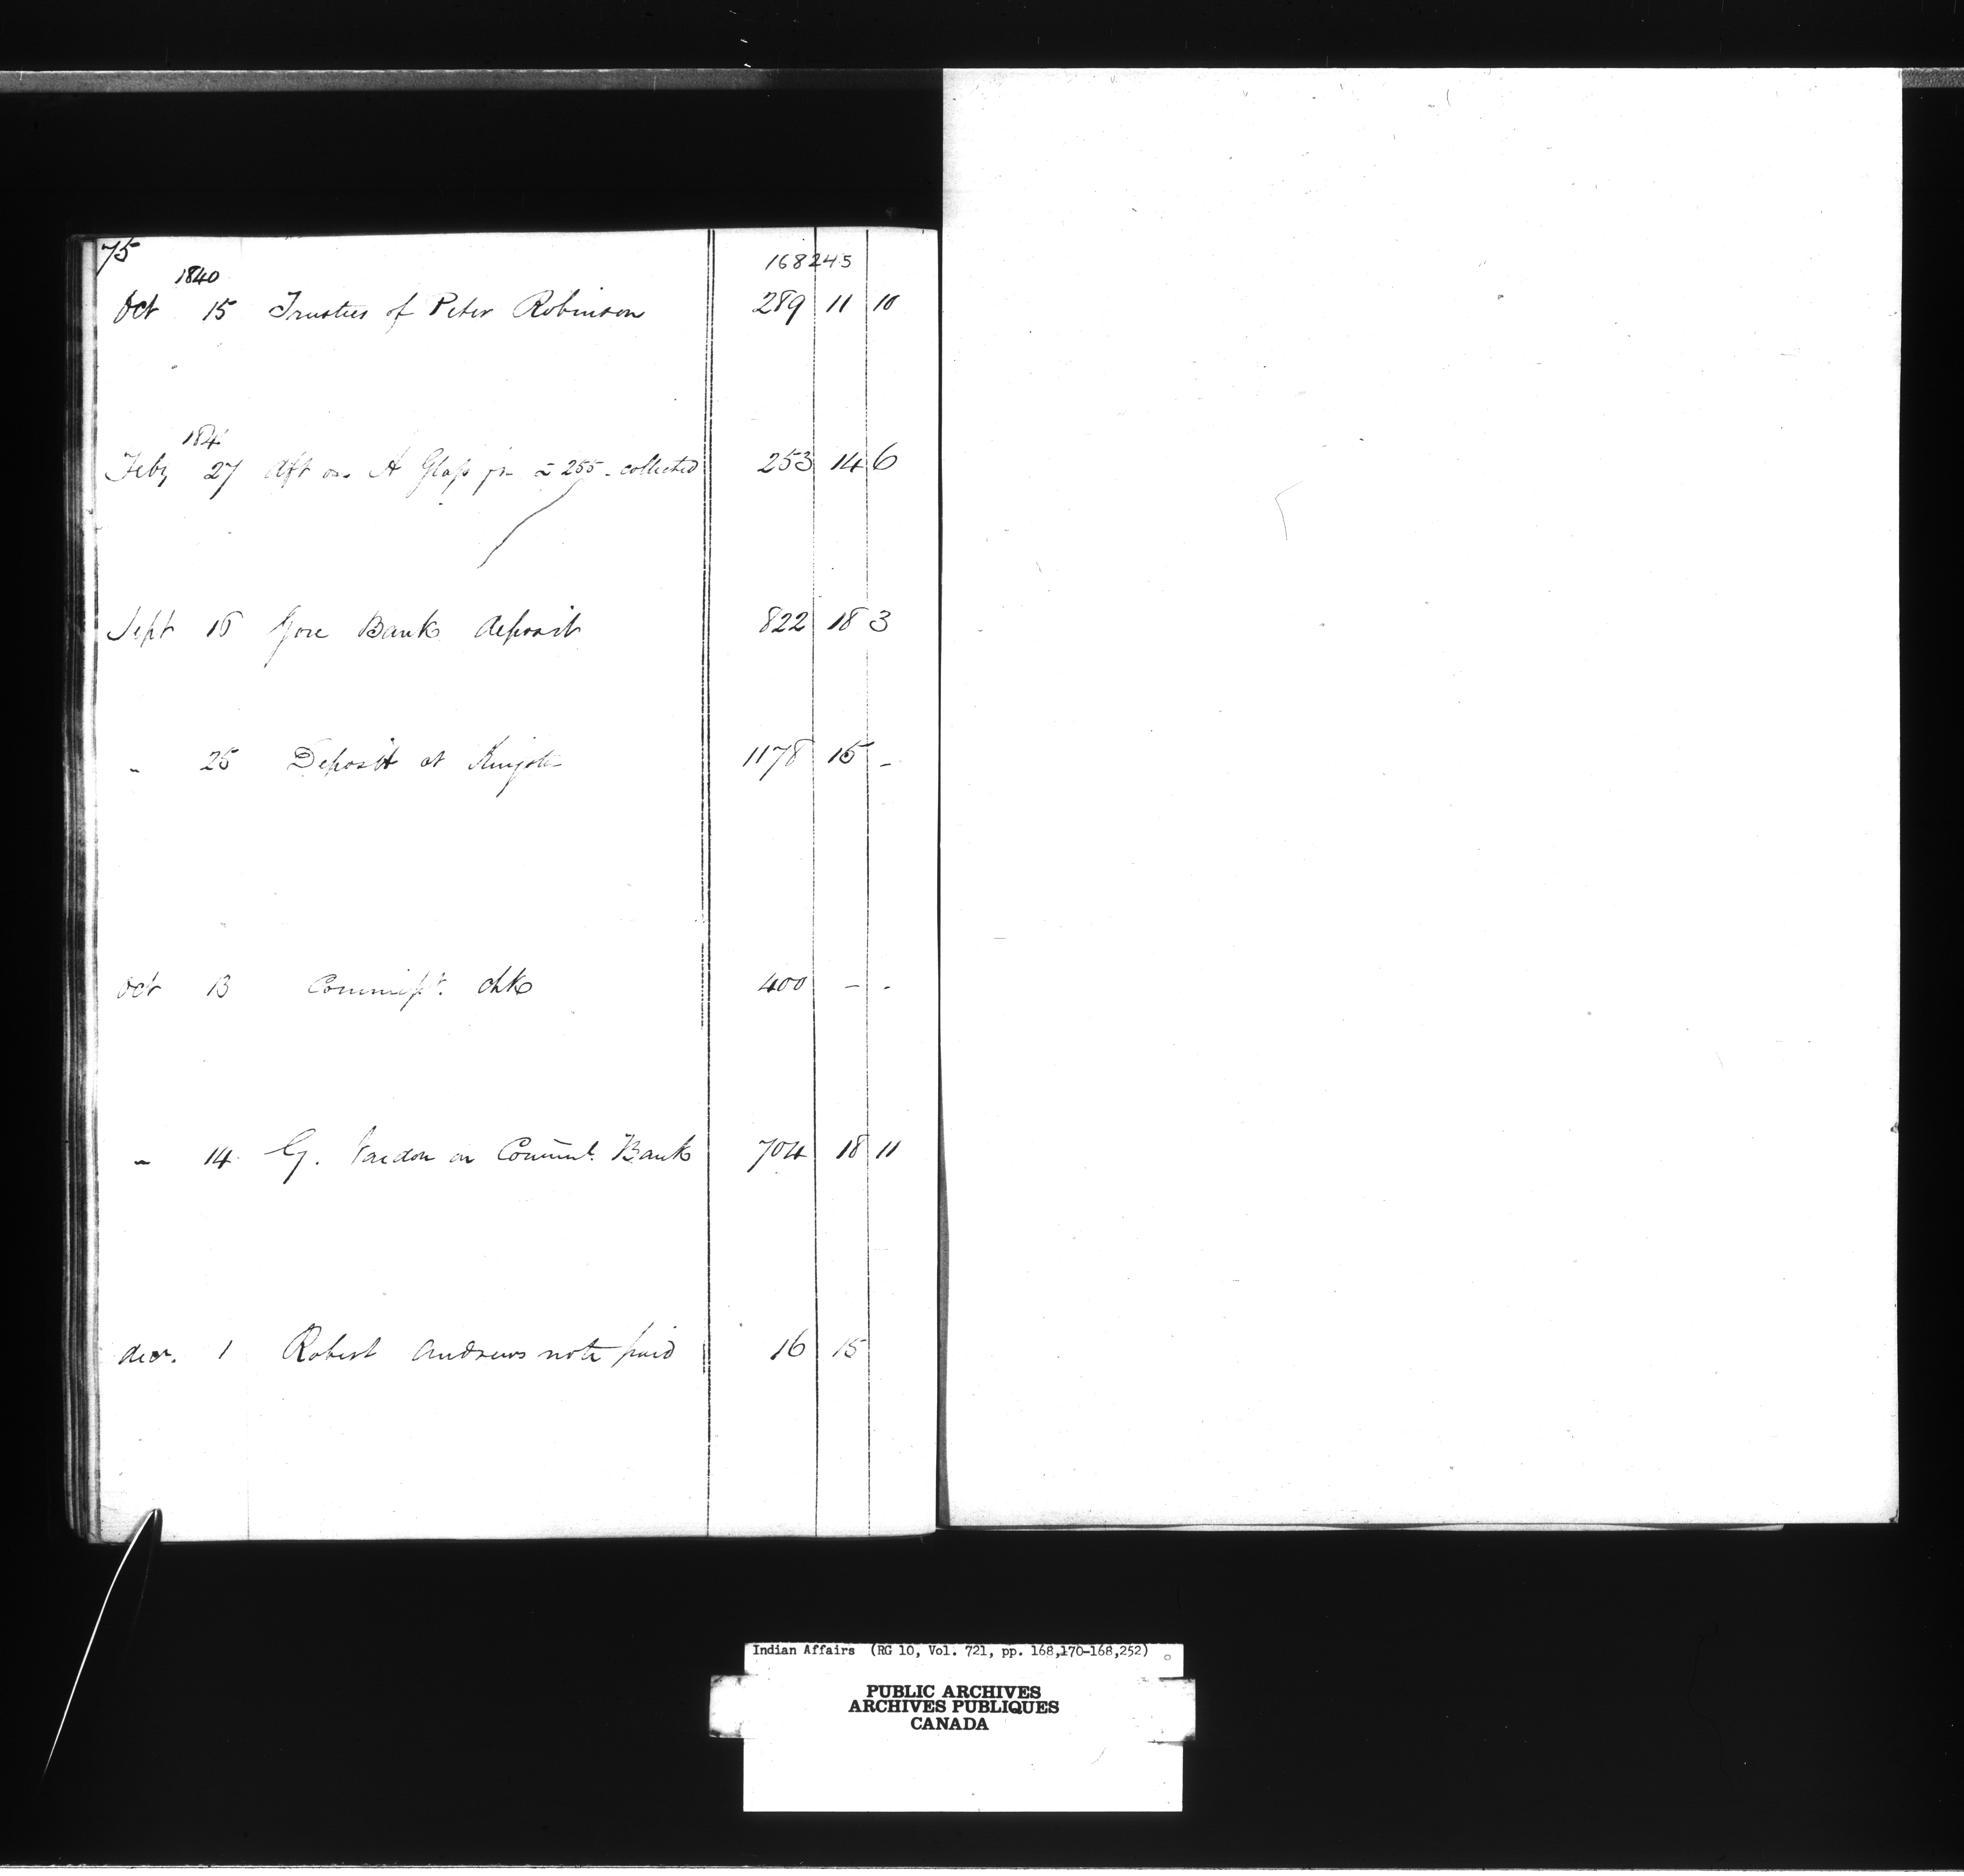 75
168245
1840
Oct 15 Trustees of Peter Robinson 289 11 10
184
Feby 27 dft on A Glass jr 255 - collected 253 14 6
Sept 15 Gore Bank deposit 822 18 3
" 25 Deposit at Kingston 1178 15 -
Oct 13 Commisst. chk 400 - -
" 14 G. Vardon on Comml. Bank 704 18 11
decr. 1 Robert Andrews note paid 16 15
Indian Affairs (RG 10, Vol. 721, pp. 168,170-168,252)
PUBLIC ARCHIVES
ARCHIVES PUBLIQUES
CANADA